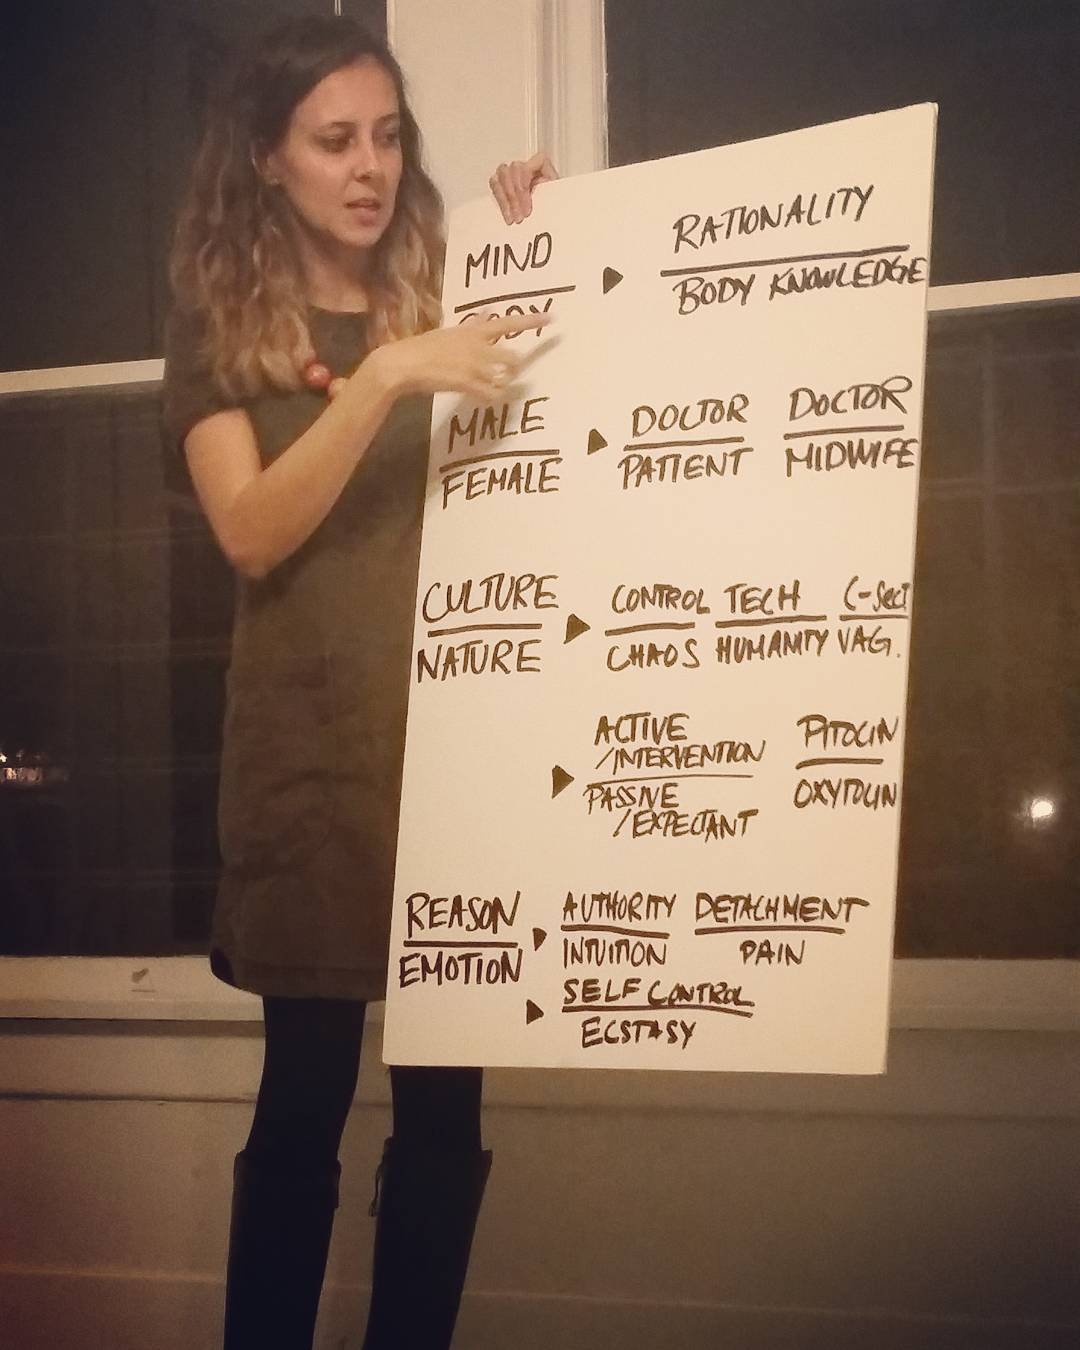 MIND ▶ RATIONALITY
BODY BODY KNOWLEDGE
MALE ▶ DOCTOR DOCTOR
FEMALE PATIENT MIDWIFE
CULTURE ▶ CONTROL TECH C-SECT
NATURE CHAOS HUMANITY VAG.
▶ ACTIVE PITOCIN
/INTERVENTION
PASSIVE OXYTOCIN
/EXPECTANT
REASON ▶ AUTHORITY DETACHMENT
EMOTION INTUITION PAIN
▶ SELF CONTROL
ECSTASY